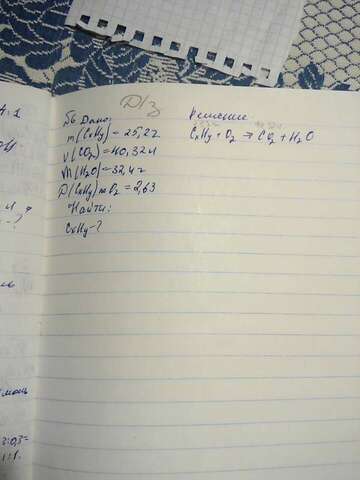 Д/з
№6 Дано:
m(CxHy)=25,2г
V(CO2)=40,32л
m(H2O)=32,4г
D(CxHy)поO2=2,63
Найти:
CxHy-?
Решение:
CxHy+O2→CO2+H2O
3:0,3=
1:1.